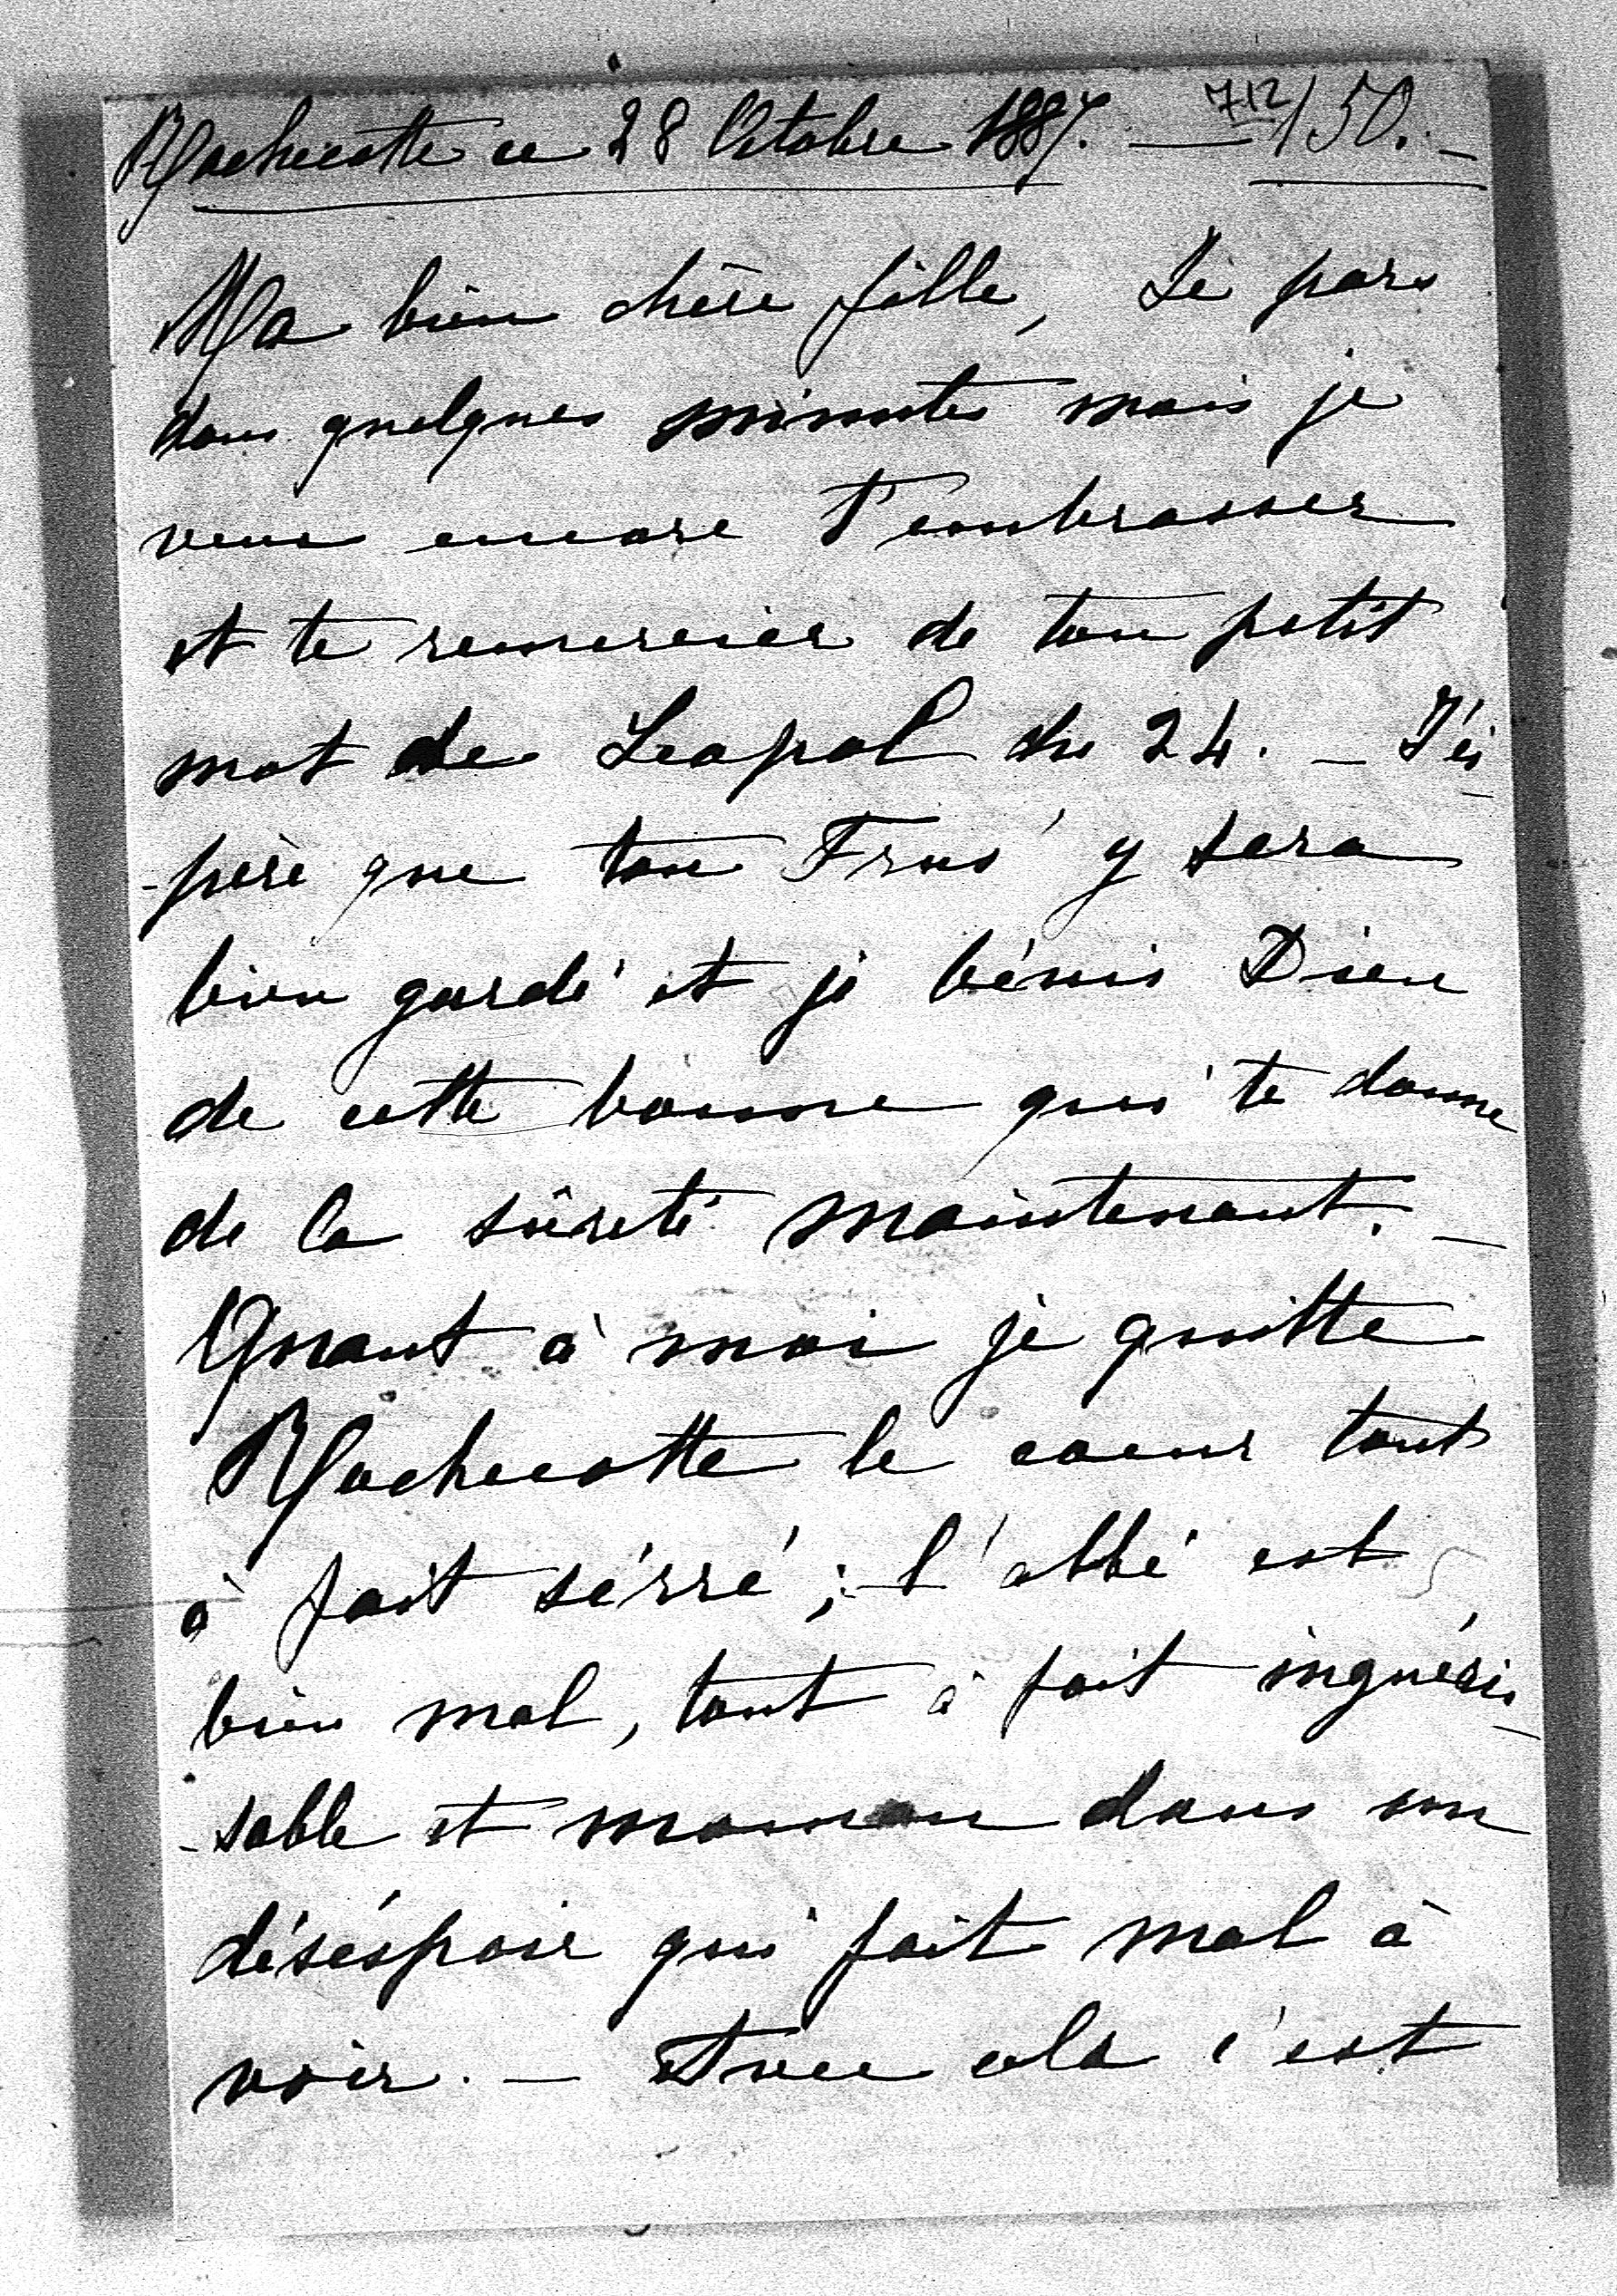 Rochecotte ce 28 Octobre 1887. — 712/150. –
Ma bien chère fille, Je pars
dans quelques minutes mais je
veux encore t'embrasser
et te remercier de ton petit
mot de Léopol du 24. – J'es
-père que ton Frus' y sera
bien gardé et je bénis Dieu
de cette bonne qui te donne
de la sûreté maintenant. –
Quant à moi je quitte
Rochecotte le coeur tout
à fait sérré ; l'abbé est
bien mal, tout à fait inguéris
-sable et maman dans un
désespoir qui fait mal à
voir. – Avec cela c'est